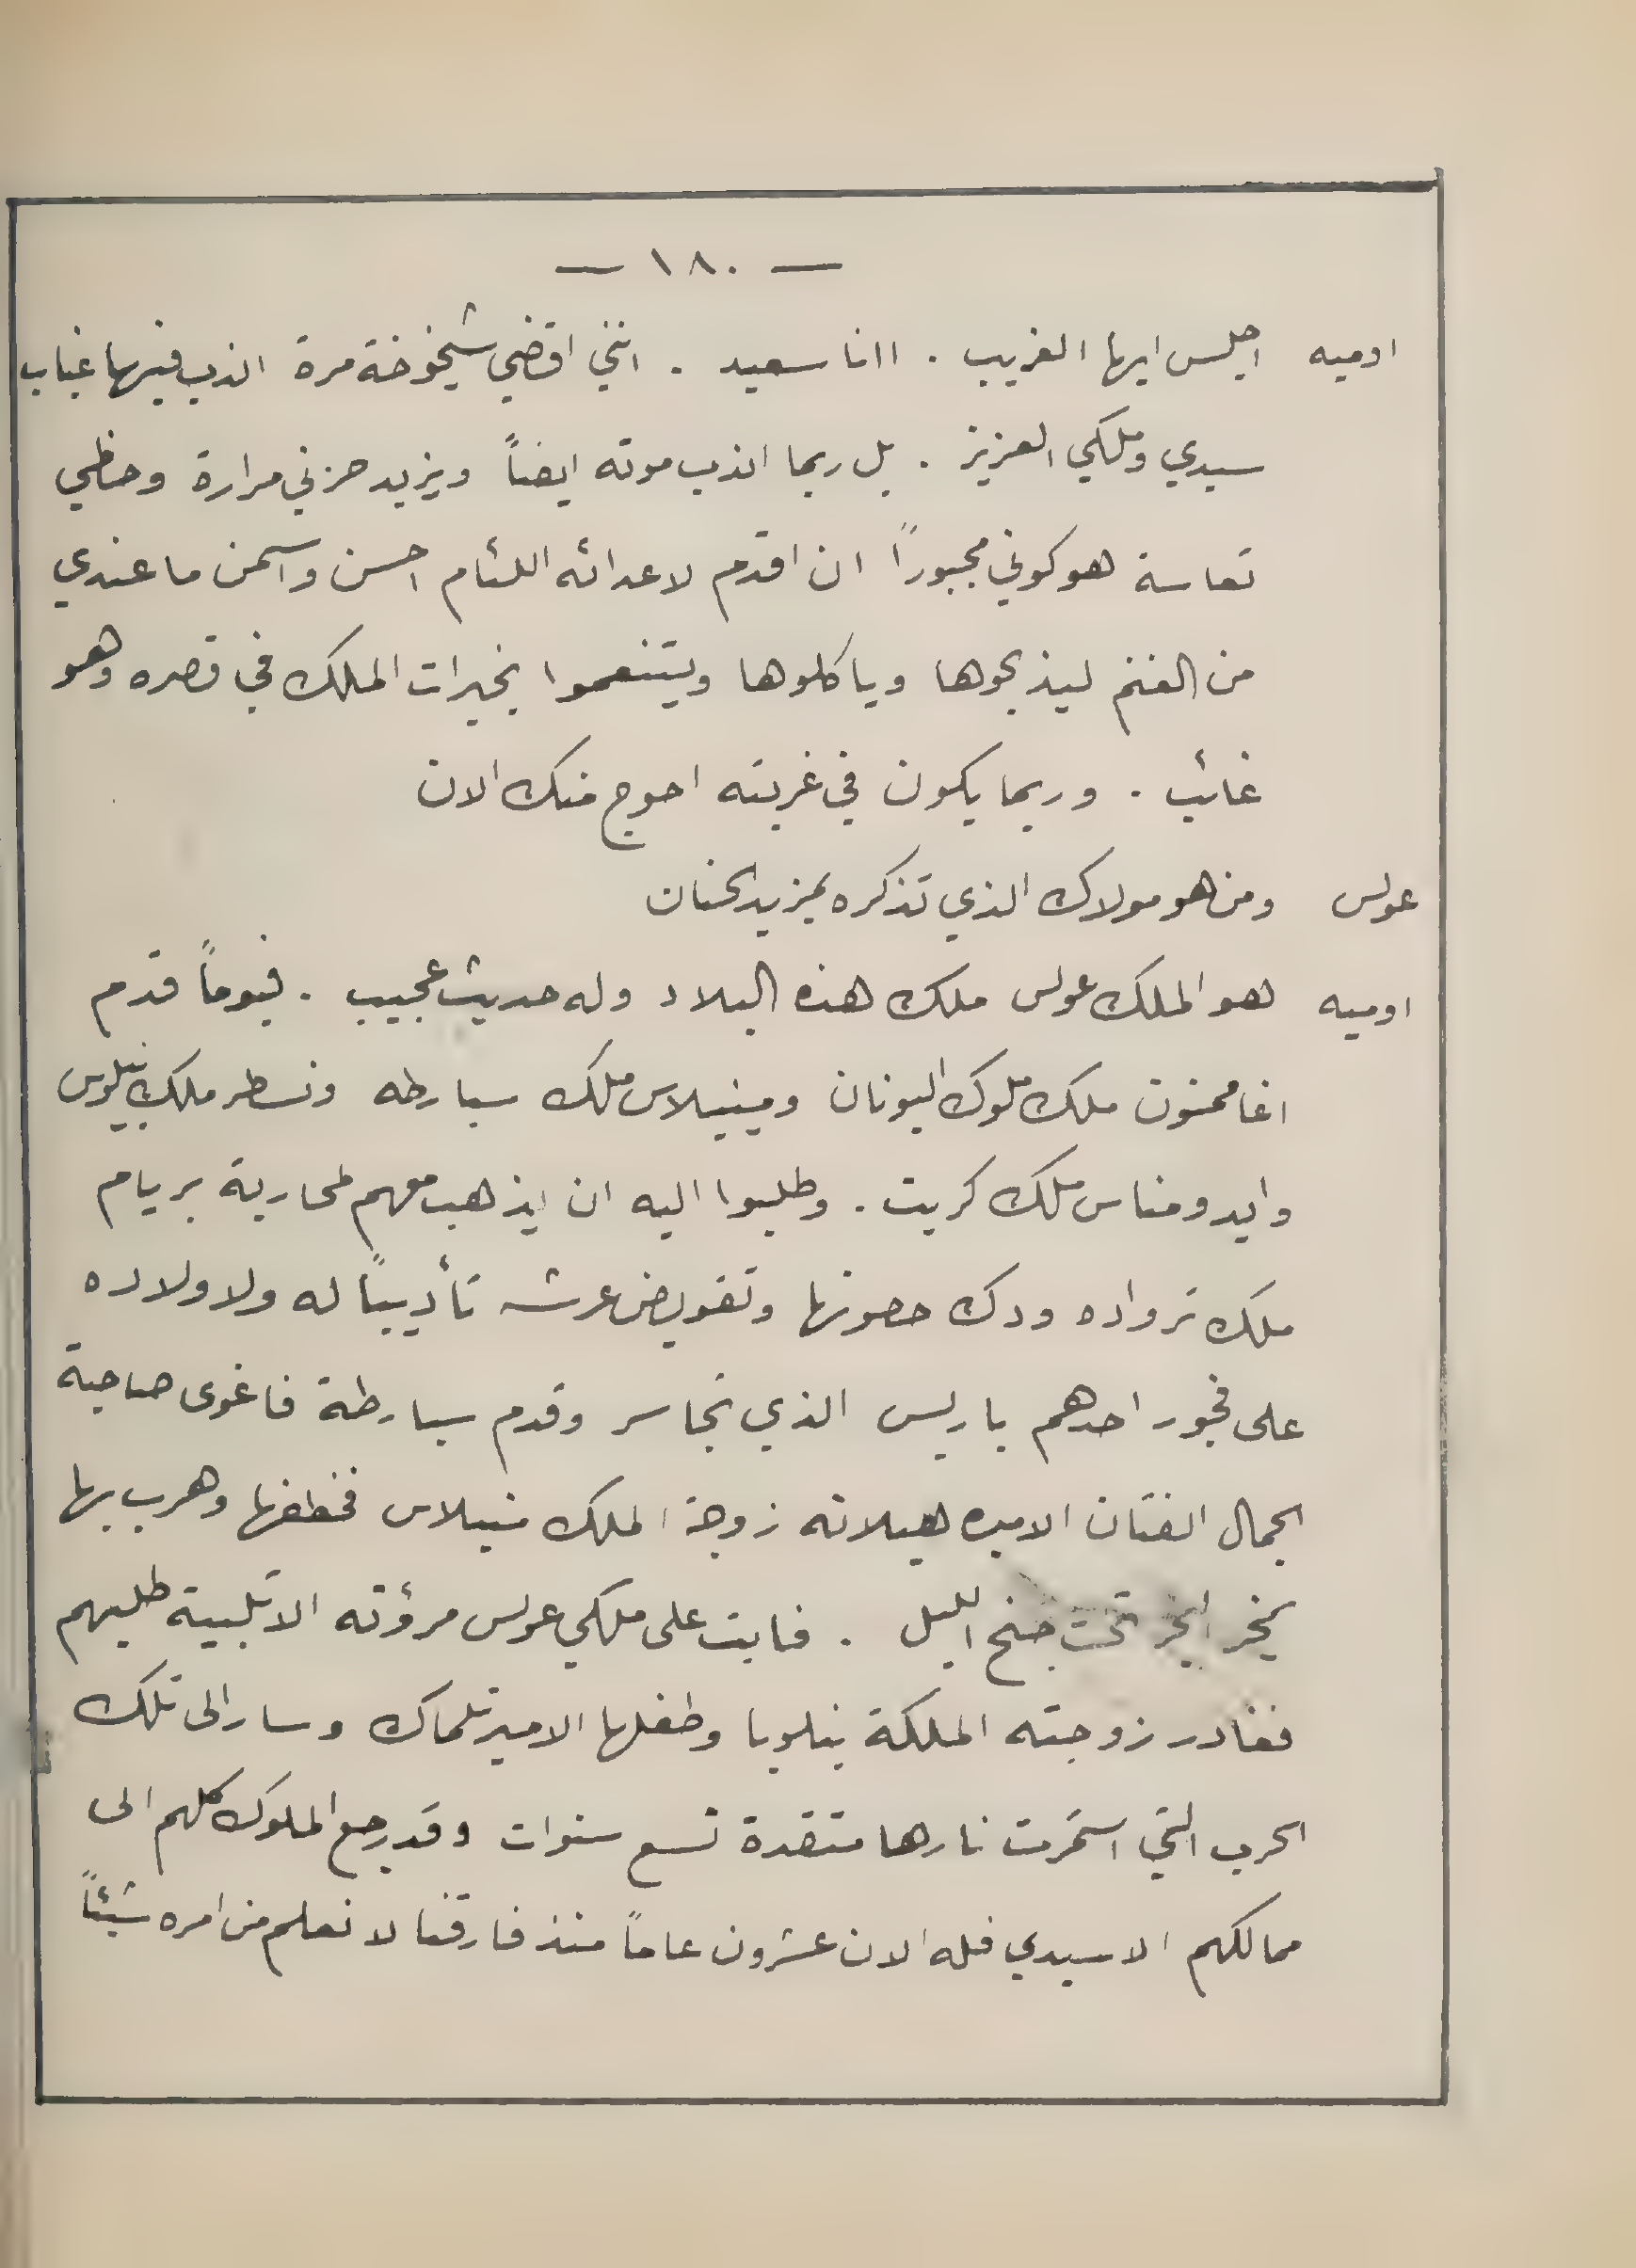 — ١٨٠ —
اوميه اجلس ايها الغريب . اانا سعيد . انني اقضي شيخوخة مرة اندب فيها غياب
سيدي وملكي العزيز . بل ربما اندب موته ايضاً ويزيد حزني مرارة وحظي
تعاسة هو كوني مجبوراً ان اقدم لاعدائه اللئام احسن واسمن ما عندي
من الغنم ليذبحوها وياكلوها ويتنعموا بخيرات الملك في قصره وهو
غائب . وربما يكون في غربته احوج منك الان
عولس ومن هو مولاك الذي تذكره بمزيد الحنان
اوميه هو الملك عولس ملك هذه البلاد وله حديث عجيب . فيوماً قدم
اغاممنون ملك ملوك اليونان ومينيلاس ملك سبارطه ونسطر ملك بيلوس
وايدومناس ملك كريت . وطلبوا اليه ان يذهب معهم لمحاربة بريام
ملك ترواده ودك حصونها وتقويض عرشه تأديباً له ولاولاده
على فجور احدهم باريس الذي تجاسر وقدم سبارطة فاغوى صاحبة
الجمال الفتان الاميره هيلانه زوجة الملك منيلاس فخطفها وهرب بها
يمخر البحر تحت جنح الليل . فابت على ملكي عولس مروٴته الا تلبية طلبهم
فغادر زوجته الملكة بنلوبا وطفلها الامير تلماك وسار الى تلك
الحرب التي استمرت نارها متقدة تسع سنوات وقد رجع الملوك كلهم الى
ممالكهم الا سيدي فله الان عشرون عاماً منذ فارقنا لا نعلم من امره شيئاً